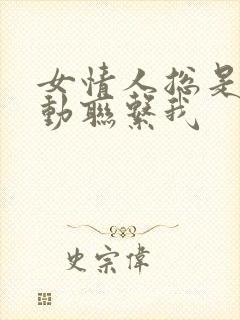 女情人总是
動聯繫我
史宗偉